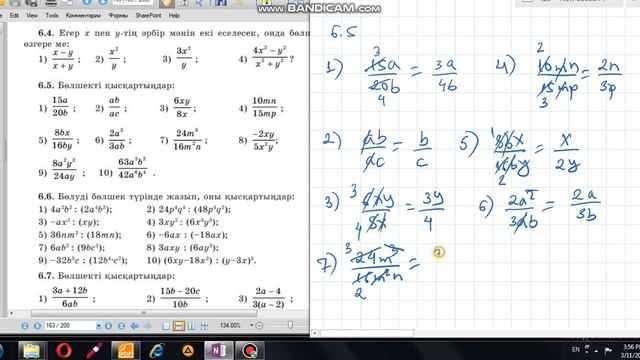 www.BANDICAM.com
Формат Инструменты SharePoint Справка
163 (163 / 200)
6.4. Егер x пен y-тің әрбір мәнін екі еселесек, онда бөл
өзгере ме:
1) x − y / x + y ; 2) x² / y ; 3) 3x² / y ; 4) 4x² − y² / x² + y² ?
6.5. Бөлшекті қысқартыңдар:
1) 15a / 20b ; 2) ab / ac ; 3) 6xy / 8x ; 4) 10mn / 15mp ;
5) 8bx / 16by ; 6) 2a² / 3ab ; 7) 24m³ / 16m²n ; 8) −2xy / 5x²y ;
9) 8a²y² / 24ay ; 10) 63a²b³ / 42a⁶b⁴ .
6.6. Бөлуді бөлшек түрінде жазып, оны қысқартыңдар:
1) 4a²b² : (2a⁴b²); 2) 24p⁴q⁴ : (48p⁴q²);
3) −ax² : (xy); 4) 3xy² : (6x³y³);
5) 36nm² : (18mn); 6) −6ax : (−18ax);
7) 6ab² : (9bc²); 8) 3axy : (6ay³);
9) −32b⁵c : (12b⁴·c²); 10) (6xy−18x²) : (y−3x)².
6.7. Бөлшекті қысқартыңдар:
1) 3a + 12b / 6ab ; 2) 15b − 20c / 10b ; 3) 2a − 4 / 3(a − 2) ;
163 / 200
134.00%
6.5
1) 3 15a / 20b 4 = 3a / 4b
4) 2 10mn / 15mp 3 = 2n / 3p
2) ab / ac = b / c
5) 1 8bx / 16by 2 = x / 2y
3) 3 6xy / 8x 4 = 3y / 4
6) 2a² / 3ab = 2a / 3b
7) 3 24m³ / 16m²n 2 =
EN
3:56 PM